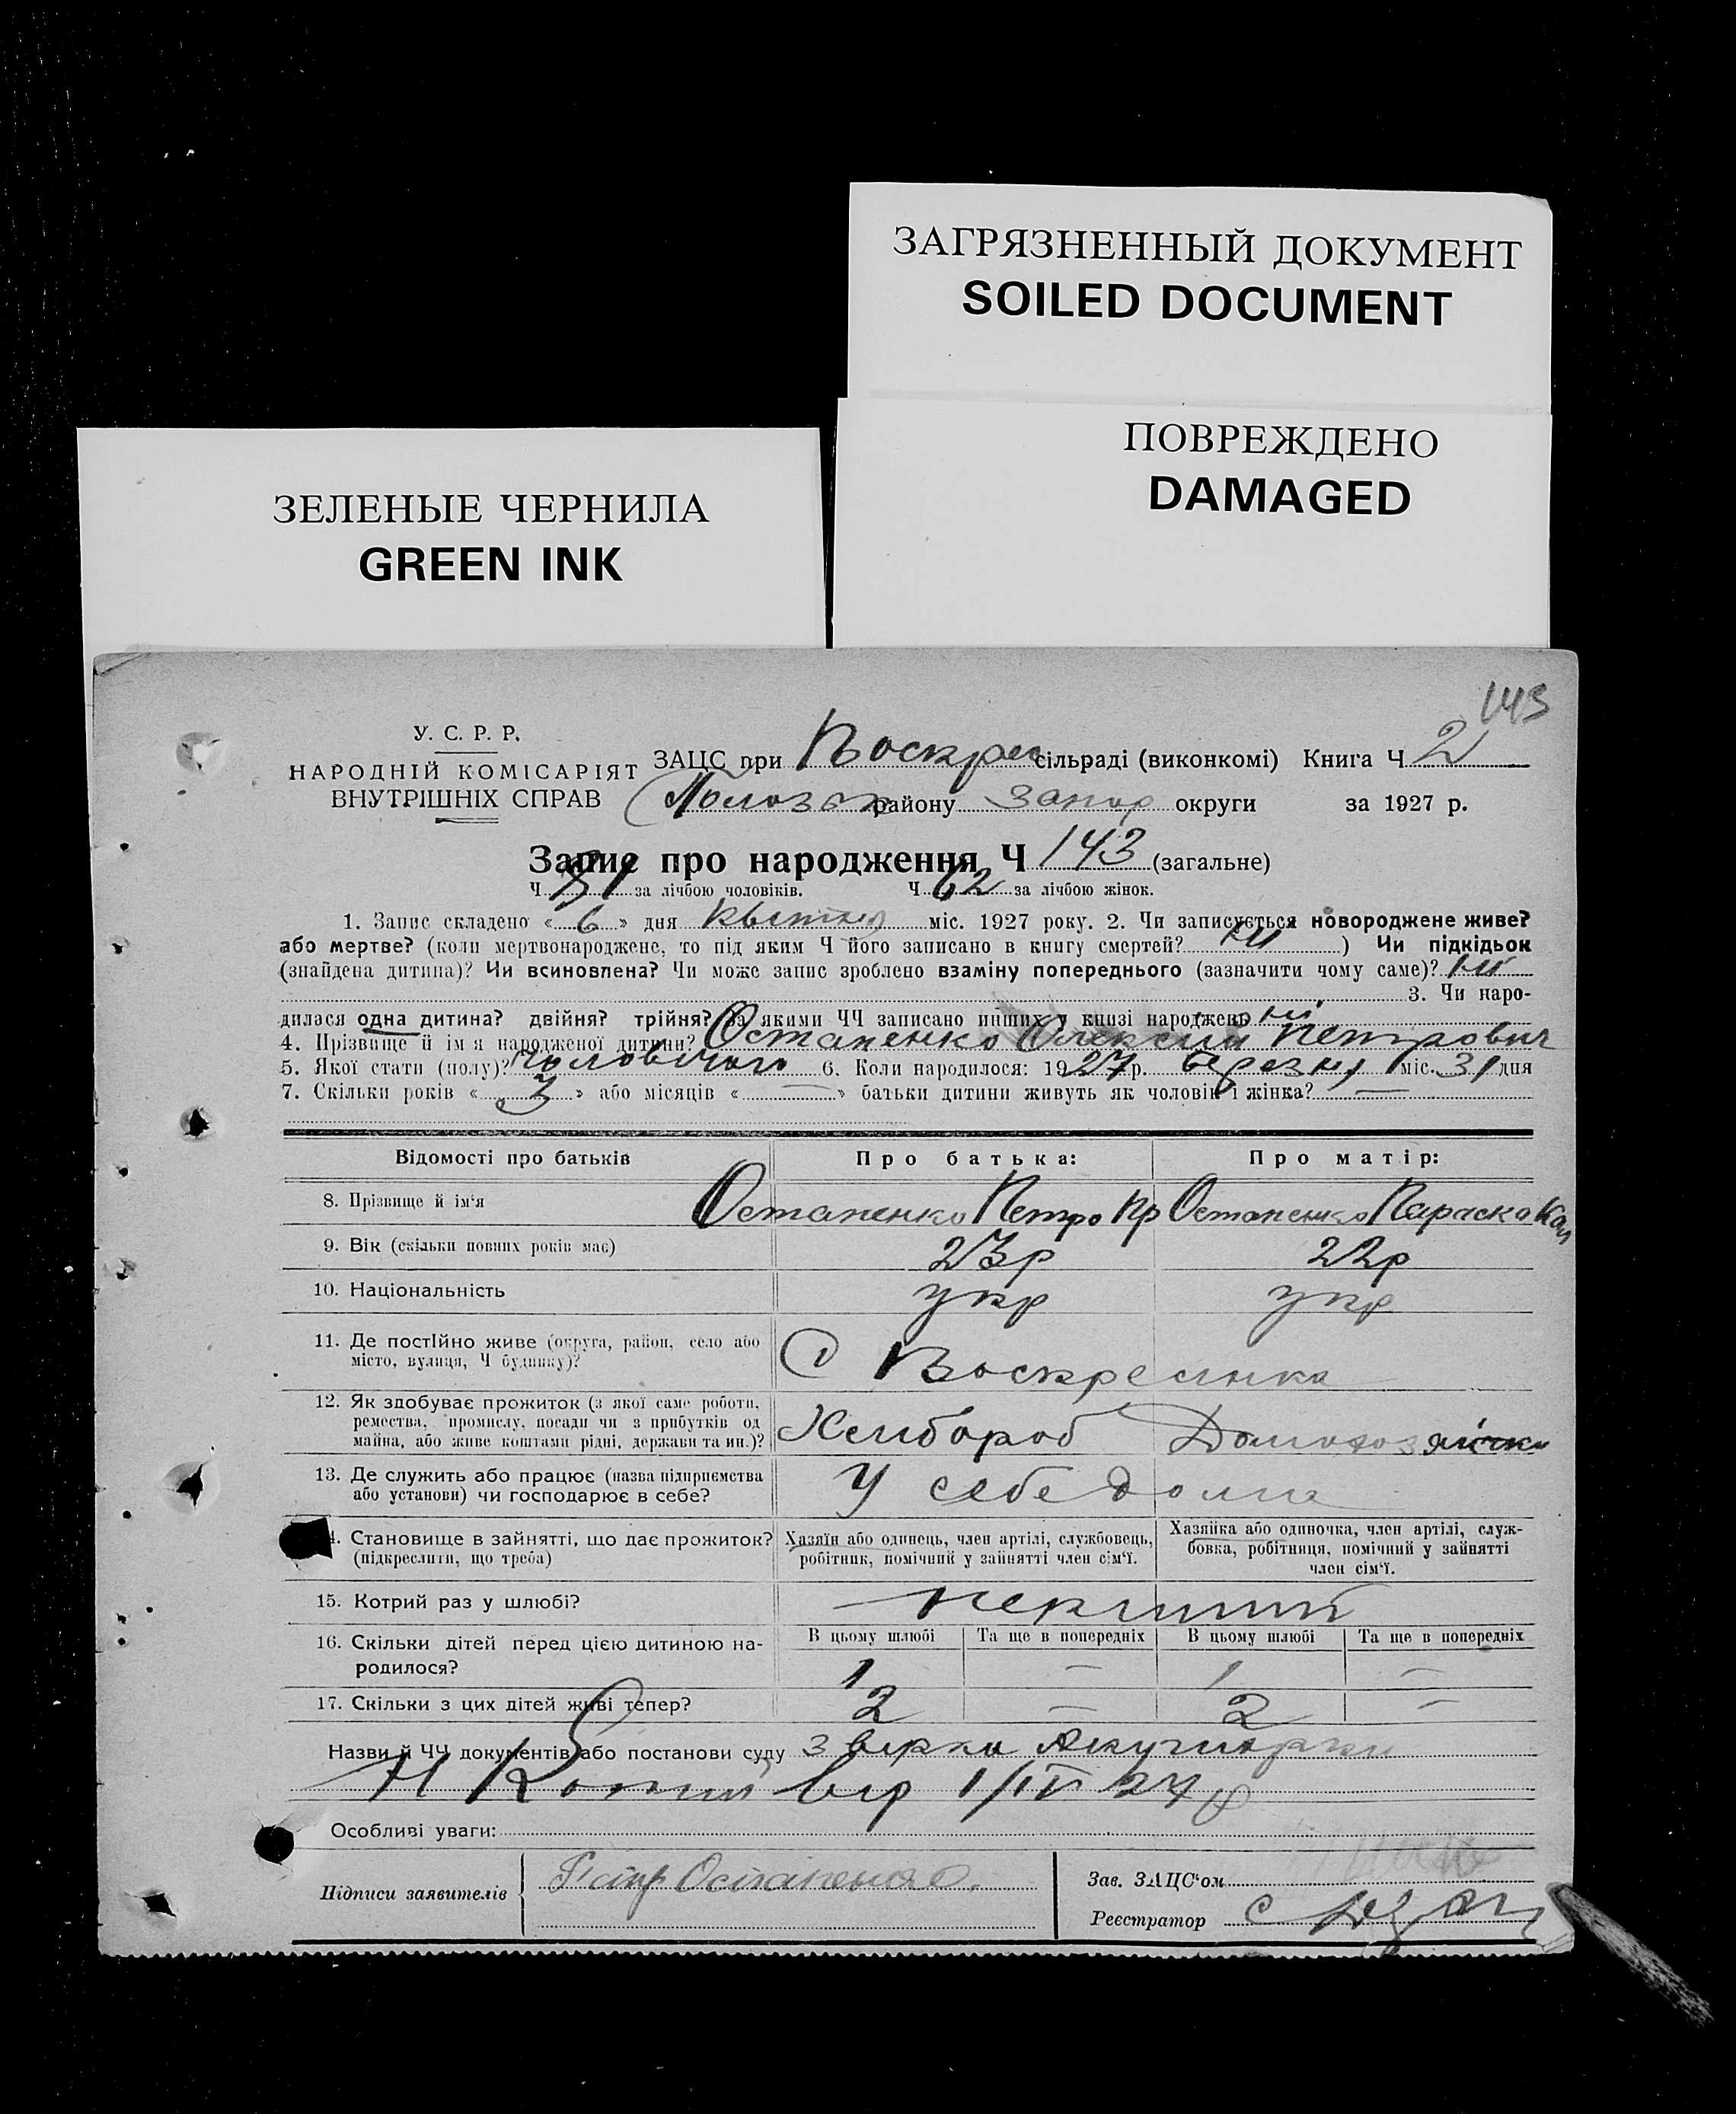 ЗАГРЯЗНЕННЫЙ ДОКУМЕНТ
SOILED DOCUMENT
ПОВРЕЖДЕНО
DAMAGED
ЗЕЛЕНЫЕ ЧЕРНИЛА
GREEN INK
143
У. С. Р. Р.
НАРОДНІЙ КОМІСАРІЯТ
ВНУТРІШНІХ СПРАВ
ЗАЦС при Воскрес сільраді (виконкомі) Книга Ч 2
району запор округи за 1927 р.
Запис про народження Ч 143 (загальне)
Ч 81 за лічбою чоловіків. Ч 62 за лічбою жінок.
1. Запис складено « 6 » дня квітня міс. 1927 року. 2. Чи записується новороджене живе?
або мертве? (коли мертвонароджене, то під яким Ч його записано в книгу смертей? ні ) Чи підкідьок
(знайдена дитина)? Чи всиновлена? Чи може запис зроблено взаміну попереднього (зазначити чому саме)? ні
3. Чи наро-
дилася одна дитина? двійня? трійня? За якими ЧЧ записано инших у книзі народжень ні
4. Прізвище й ім'я народженої дитини? Остапенко Олексій Петрович
5. Якої стати (полу)? чоловічого 6. Коли народилося: 1927 р. березня міс. 31 дня
7. Скільки років « 3 » або місяців « — » батьки дитини живуть як чоловік і жінка? —
Відомості про батьків Про батька: Про матір:
8. Прізвище й ім'я Остапенко Петро Пр Остапенко Параска
9. Вік (скільки повних років має) 23р 22р
10. Національність укр укр
11. Де постійно живе (округа, район, село або
місто, вулиця, Ч будинку)? с Воскресінка
12. Як здобуває прожиток (з якої саме роботи,
ремества, промислу, посади чи з прибутків од
майна, або живе коштами рідні, держави та ин.)? Хлибороб Домохозяйка
13. Де служить або працює (назва підприємства
або установи) чи господарює в себе? У себе дома
4. Становище в зайнятті, що дає прожиток?
(підкреслити, що треба)
Хазяїн або одинець, член артілі, службовець,
робітник, помічний у зайнятті член сім'ї.
Хазяйка або одиночка, член артілі, служ-
бовка, робітниця, помічний у зайнятті
член сім'ї.
15. Котрий раз у шлюбі? перший
16. Скільки дітей перед цією дитиною на-
родилося?
В цьому шлюбі Та ще в попередніх В цьому шлюбі Та ще в попередніх
1 — 1 —
17. Скільки з цих дітей живі тепер? 2 — 2 —
Назви й ЧЧ документів або постанови суду
від 1/IV 27 р
Особливі уваги:
Підписи заявителів Остапенко
Зав. ЗАЦС'ом
Реєстратор